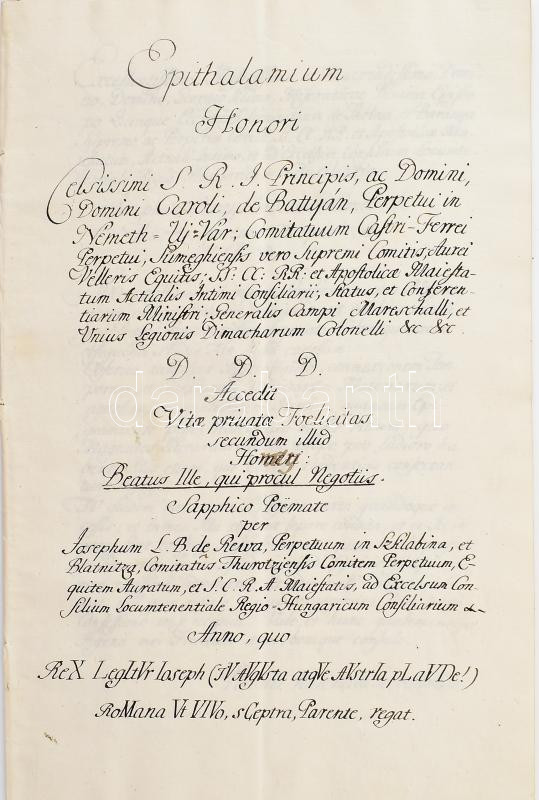 Epithalamium
Honori
Celsissimi S. R. I. Principis, ac Domini,
Domini Caroli, de Battyán, Perpetui in
Németh=Uj=Vár; Comitatuum Castri-Ferrei
Perpetui, Sümeghiensis vero Supremi Comitis; Aurei
Velleris Equitis; SS: CC: RR: et Apostolicæ Maiesta-
tum Actualis Intimi Consiliarii; Status, et Conferen-
tiarum Ministri; Generalis Campi Mareschalli, et
Unius Legionis Dimacharum Colonelli &c &c.
D. D. D.
darabanth
Accedit
Vitæ privatæ Foelicitas
secundum illud
Homeri:
Beatus Ille, qui procul Negotiis.
Sapphico Poëmate
per
Josephum L. B. de Rewa, Perpetuum in Szklabina, et
Blatnitza, Comitatûs Thurotziensis Comitem Perpetuum, E-
quitem Auratum, et S. C. R. A. Maiestatis, ad Excelsum Con-
silium Locumtenentiale Regio-Hungaricum Consiliarium &-
Anno, quo
ReX LegItVr Ioseph (TV AVgVsta atqVe AVstrIa pLaVDe!)
RoMana Vt VIVo, sCeptra, Parente, regat.